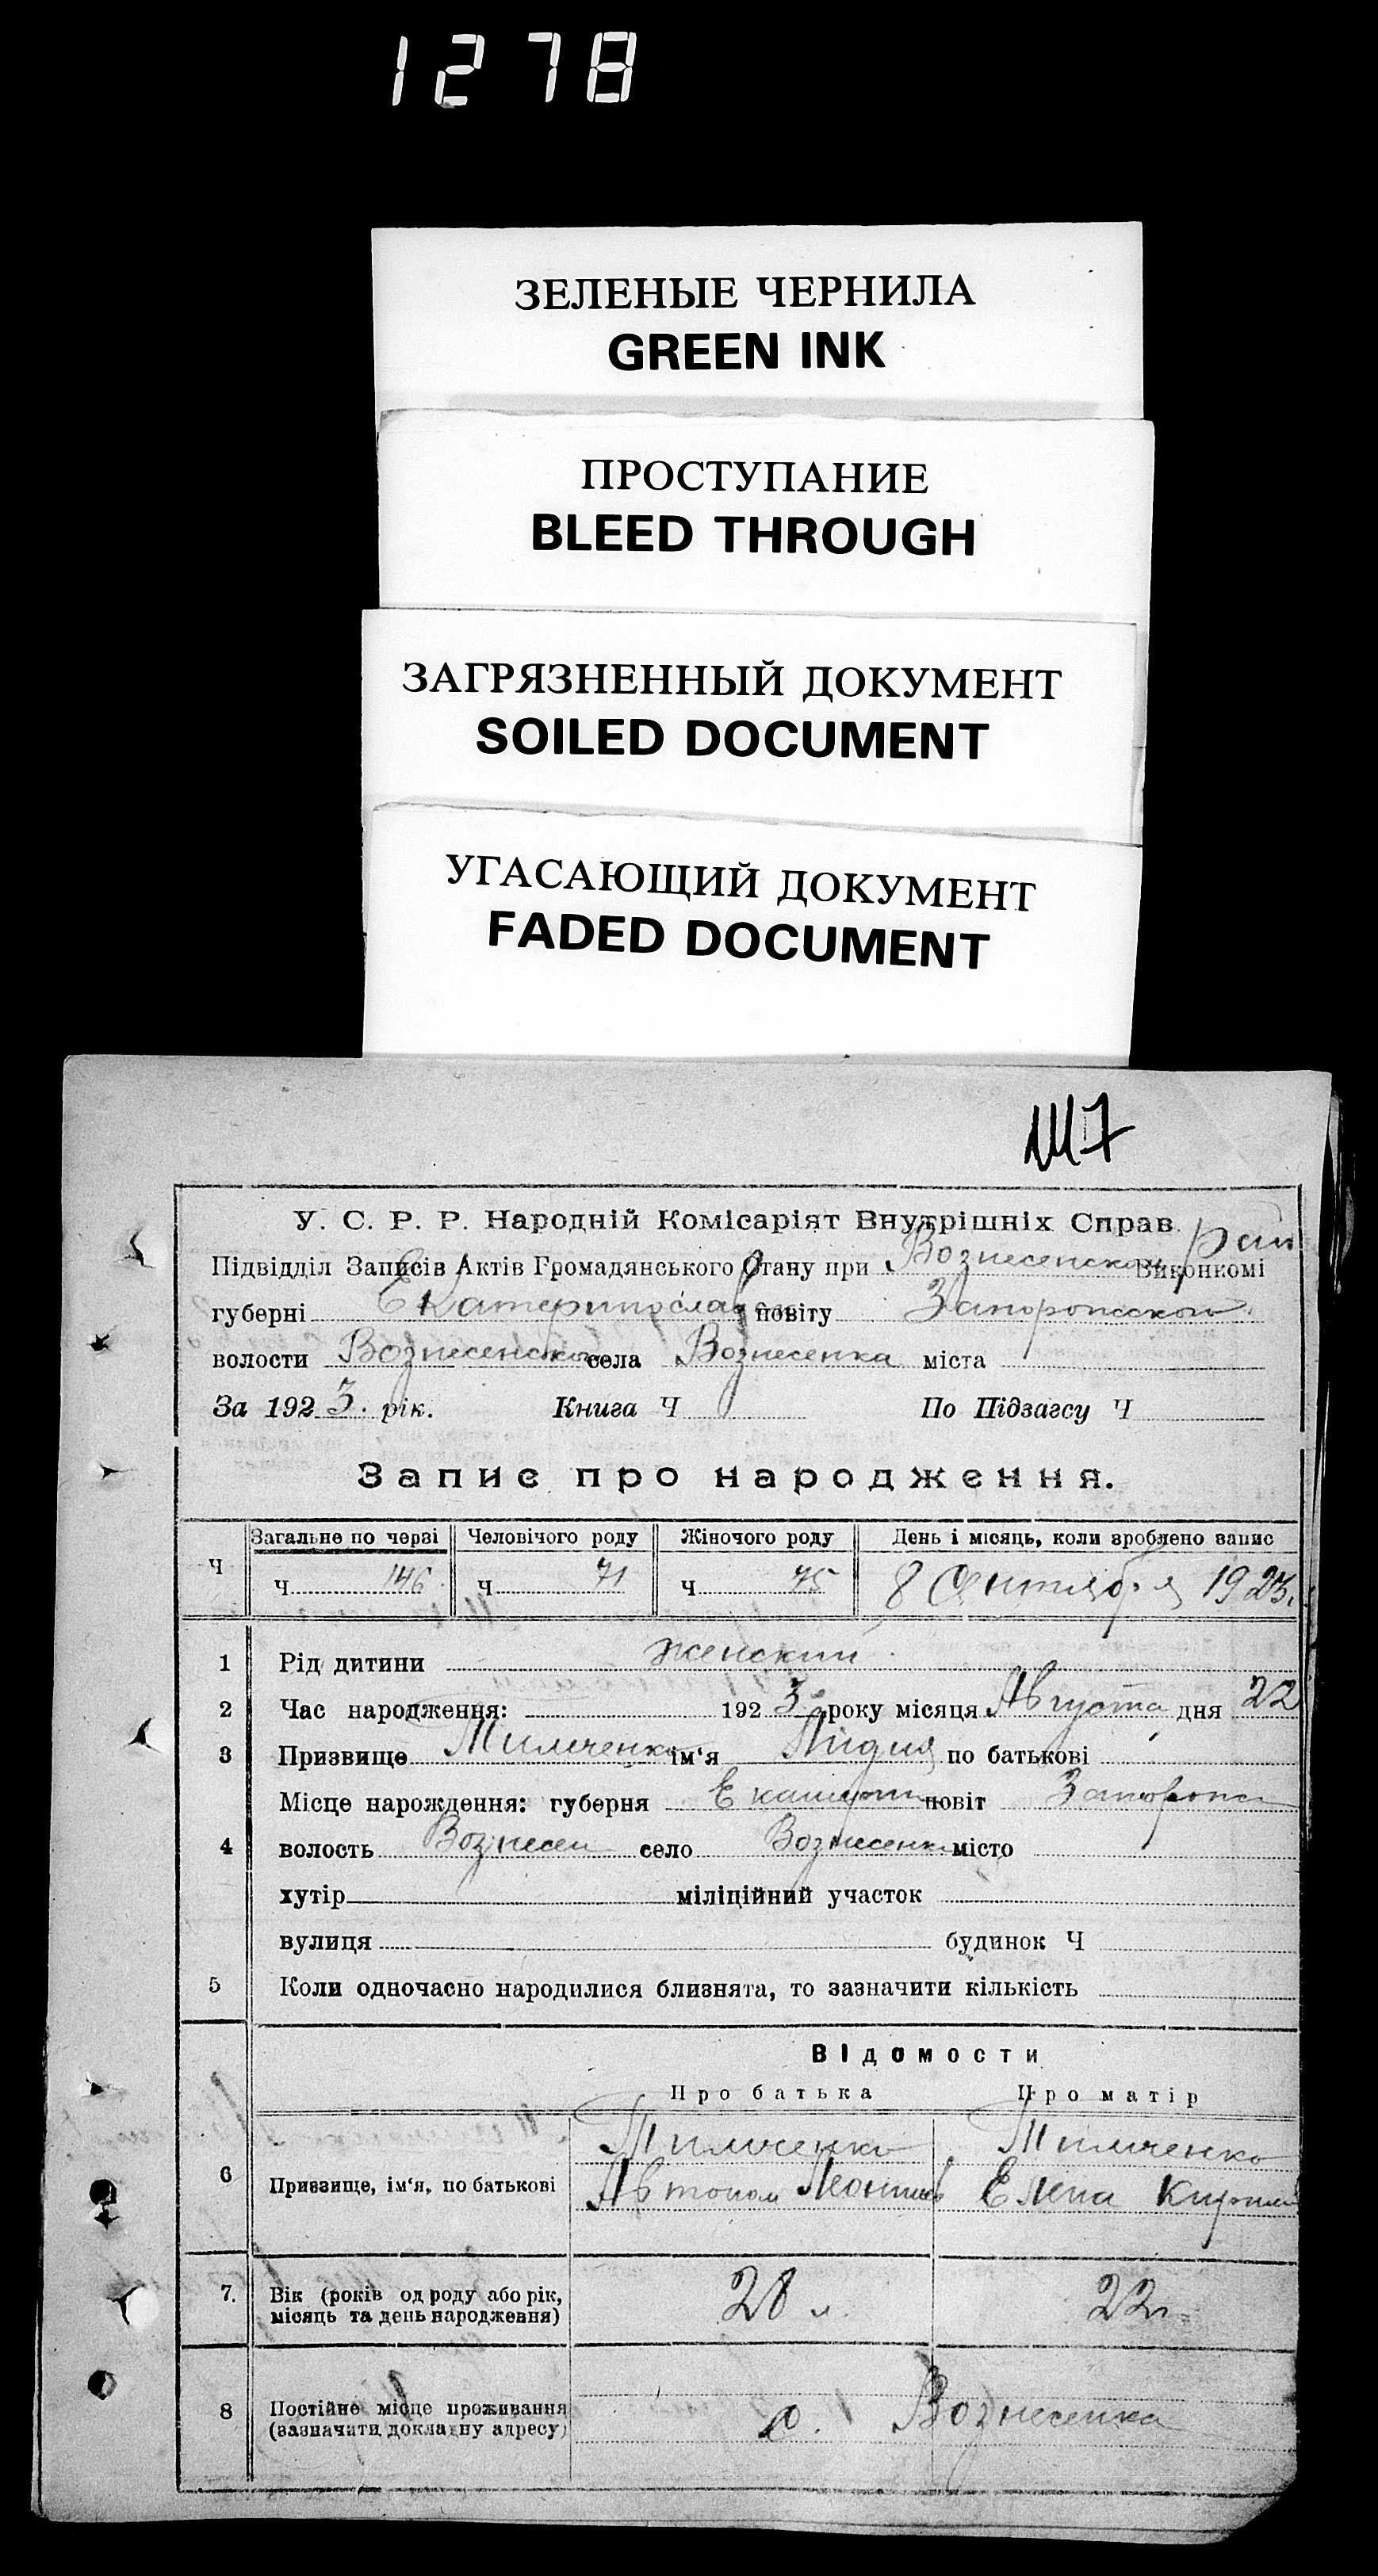 1278
ЗЕЛЕНЫЕ ЧЕРНИЛА
GREEN INK
ПРОСТУПАНИЕ
BLEED THROUGH
ЗАГРЯЗНЕННЫЙ ДОКУМЕНТ
SOILED DOCUMENT
УГАСАЮЩИЙ ДОКУМЕНТ
FADED DOCUMENT
У. С. Р. Р. Народній Комісаріят Внутрішніх Справ
Підвідділ Записів Актів Громадянського Стану при Вознесенском Рай Виконкомі
губерні Екатеринослав повіту Запорожского
волости Вознесенской села Вознесенка міста
За 1923. рік. Книга Ч По Підзагсу Ч
Запис про народження.
Загальне по черзі Человічого роду Жіночого роду День і місяць, коли зроблено запис
Ч Ч 146 Ч 71 Ч 75 8 Сентября 1923.
1 Рід дитини женский
2 Час народження: 1923 року місяця Августа дня 22
3 Призвище ім'я Лидия по батькові
Місце нарождення: губерня Екатерин повіт Запорож
4 волость Вознесен село Вознесенка місто
хутір міліційний участок
вулиця будинок Ч
5 Коли одночасно народилися близнята, то зазначити кількість
Відомости
Про батька Про матір
6 Призвище, ім'я, по батькові Автоном Леонтьев Елена Кирил
7. Вік (років од роду або рік, 28 л. 22 л
місяць та день народження)
8 Постійне місце проживання с. Вознесенка
(зазначити докладну адресу)